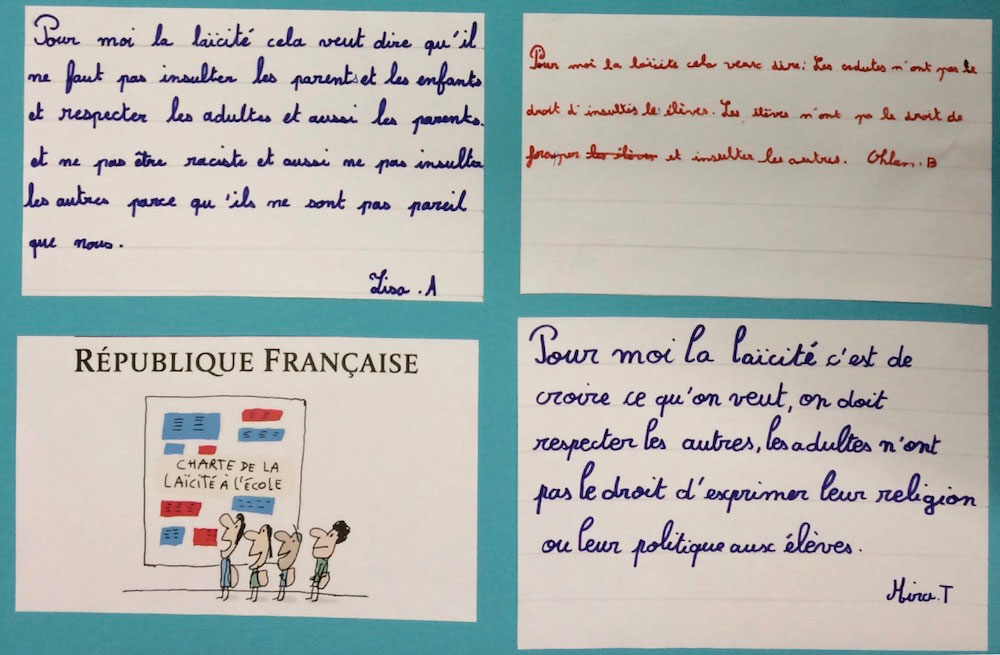 Pour moi la laïcité cela veut dire qu'il
ne faut pas insulter les parents et les enfants
et respecter les adultes et aussi les parents.
et ne pas être raciste et aussi ne pas insulter
les autres parce qu'ils ne sont pas pareil
que nous.
Lisa.A
Pour moi la laïcite cela veux dire: Les adultes n'ont pas le
droit d'insultés le élèves. Les élèves n'ont pa le droit de
frapper les élèves et insulter les autres. B
RÉPUBLIQUE FRANÇAISE
CHARTE DE LA
LAÏCITÉ À L'ÉCOLE
Pour moi la laïcité c'est de
croire ce qu'on veut, on doit
respecter les autres, les adultes n'ont
pas le droit d'exprimer leur religion
ou leur politique aux élèves.
T